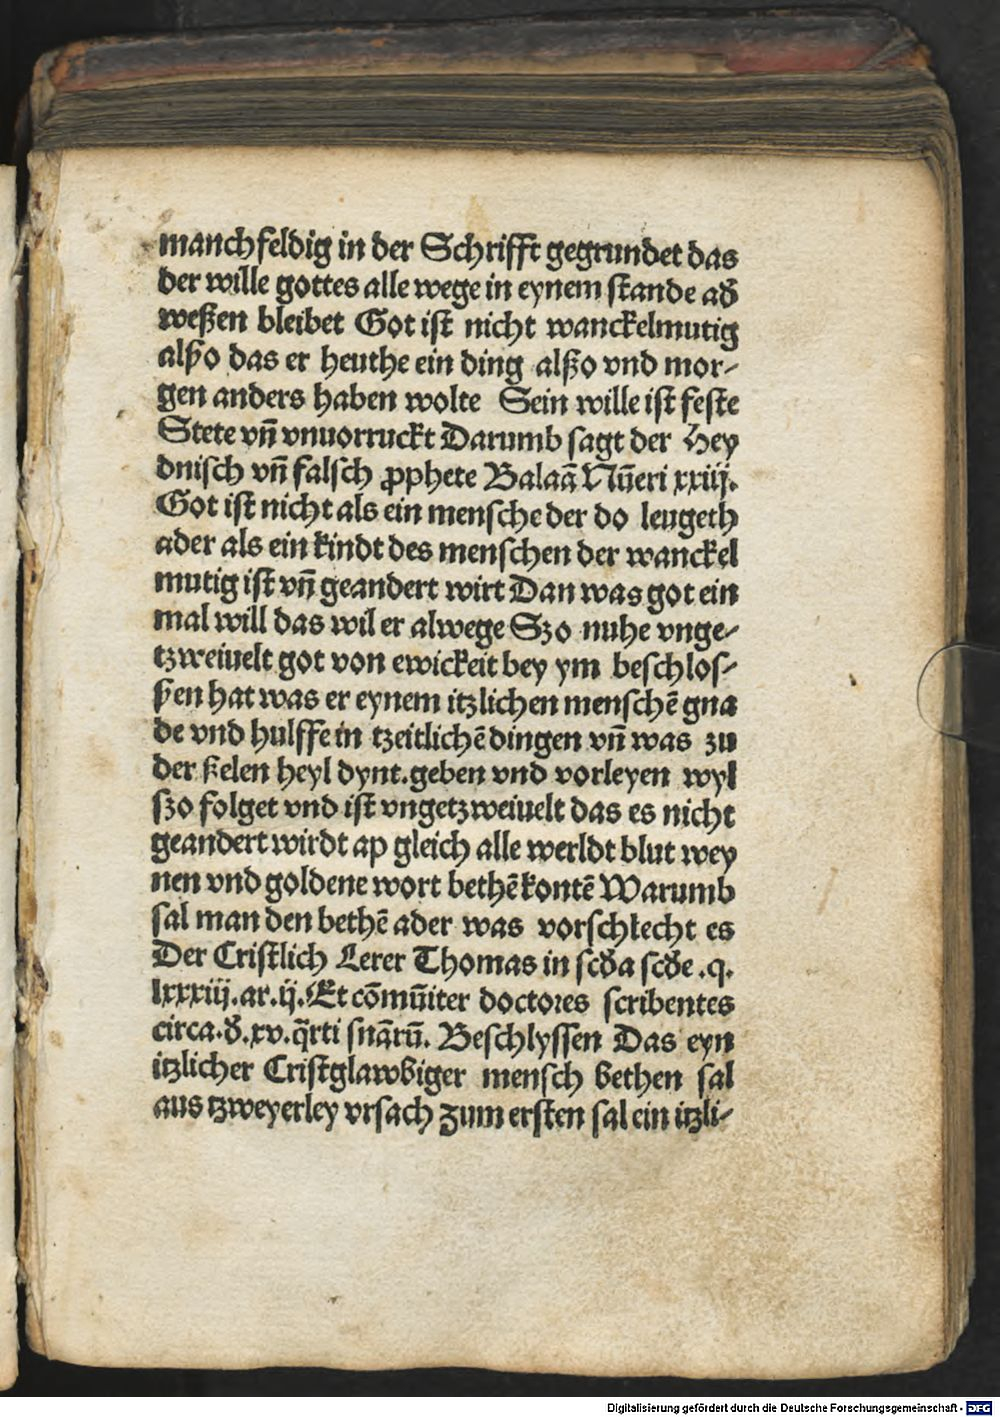 manchfeldig in der Schrifft gegrundet das
der wille gottes alle wege in eynem stande ad̕
weßen bleibet Got ist nicht wanckelmutig
alßo das er heuthe ein ding alßo vnd mor⸗
gen anders haben wolte Sein wille ist feste
Stete vn̄ vnuorruckt Darumb sagt der Hey
dnisch vn̄ falsch ꝓphete Balaā Nūeri xxiij.
Got ist nicht als ein mensche der do leugeth
ader als ein kindt des menschen der wanckel
mutig ist vn̄ geandert wirt Dan was got ein
mal will das wil er alwege Szo nuhe vnge⸗
tzweiuelt got von ewickeit bey ym beschlos⸗
ßen hat was er eynem itzlichen menschē gna
de vnd hulffe in tzeitlichē dingen vn̄ was zu
der ßelen heyl dynt.geben vnd vorleyen wyl
ſzo folget vnd ist vngetzweiuelt das es nicht
geandert wirdt ap gleich alle werldt blut wey
nen vnd goldene wort bethē kontē Warumb
sal man den bethē ader was vorschlecht es
Der Cristlich Lerer Thomas in scd̕a scd̕e .q.
lxxxiij.ar.ij. Et cōmūiter doctores scribentes
circa.d̕.xv.q̄rti snārū. Beschlyssen Das eyn
itzlicher Cristglawbiger mensch bethen sal
aus tzweyerley vrsach zum ersten sal ein itzli⸗
Digitalisierung gefördert durch die Deutsche Forschungsgemeinschaft - DFG